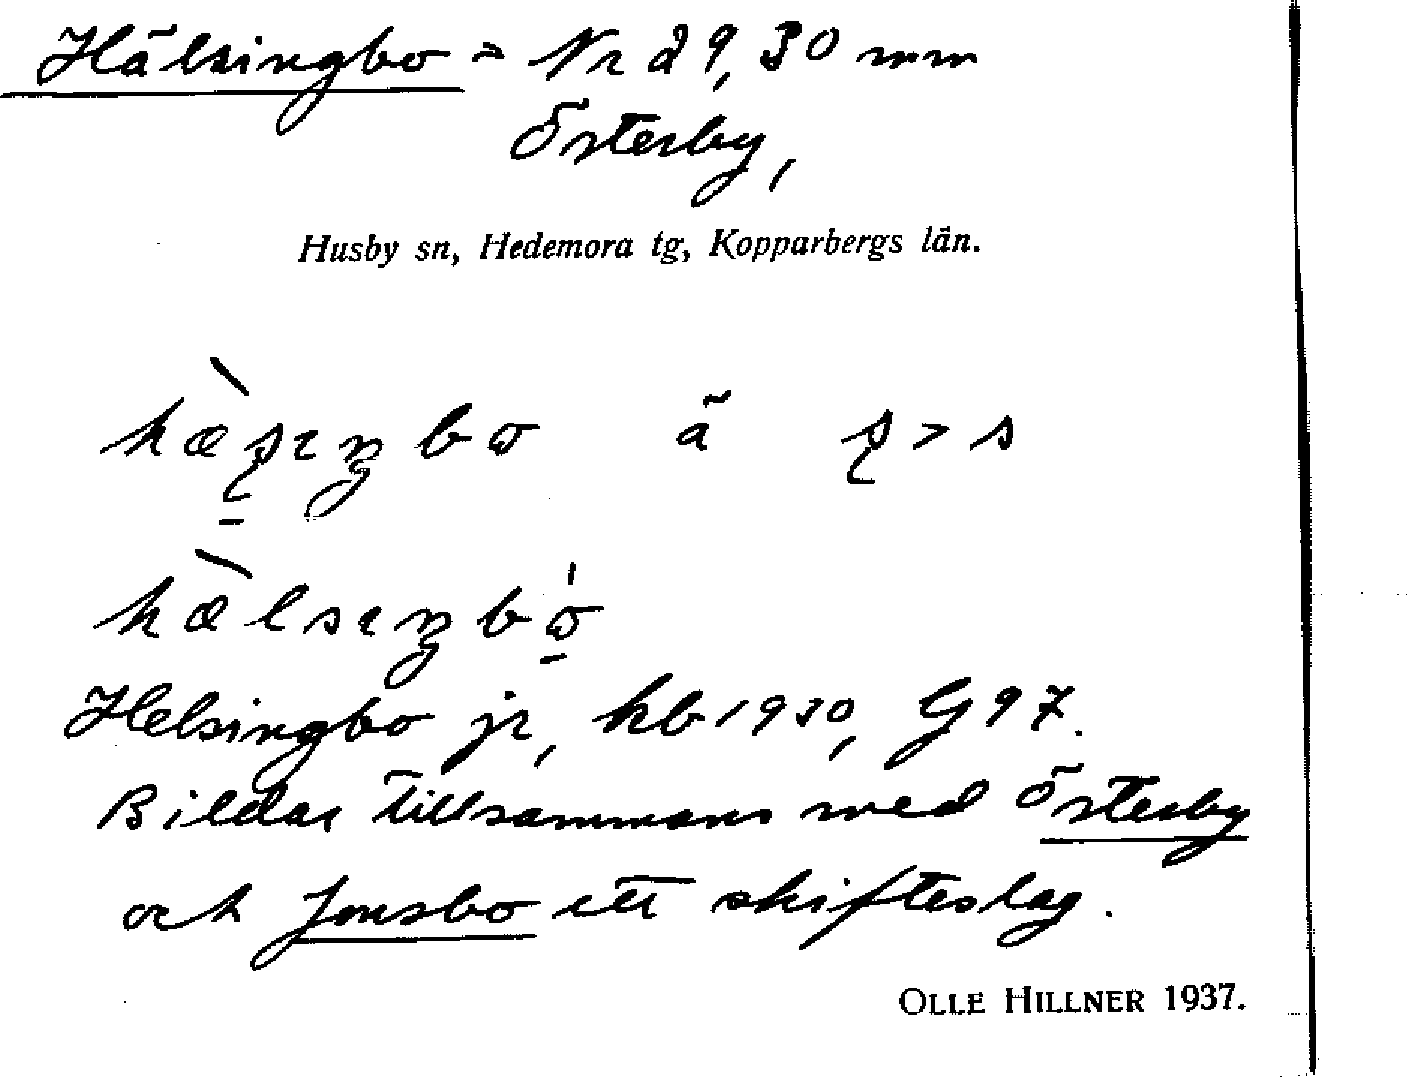 Hälsingbo = Nr 29, 30 mm
Österby,
Husby sn, Hedemora tg, Kopparbergs län.
ä > s
Helsingbo jr, kb 1930, G 97.
Bildar tillsammans med Österby
och Jonsbo ett skifteslag.
OLLE HILLNER 1937.